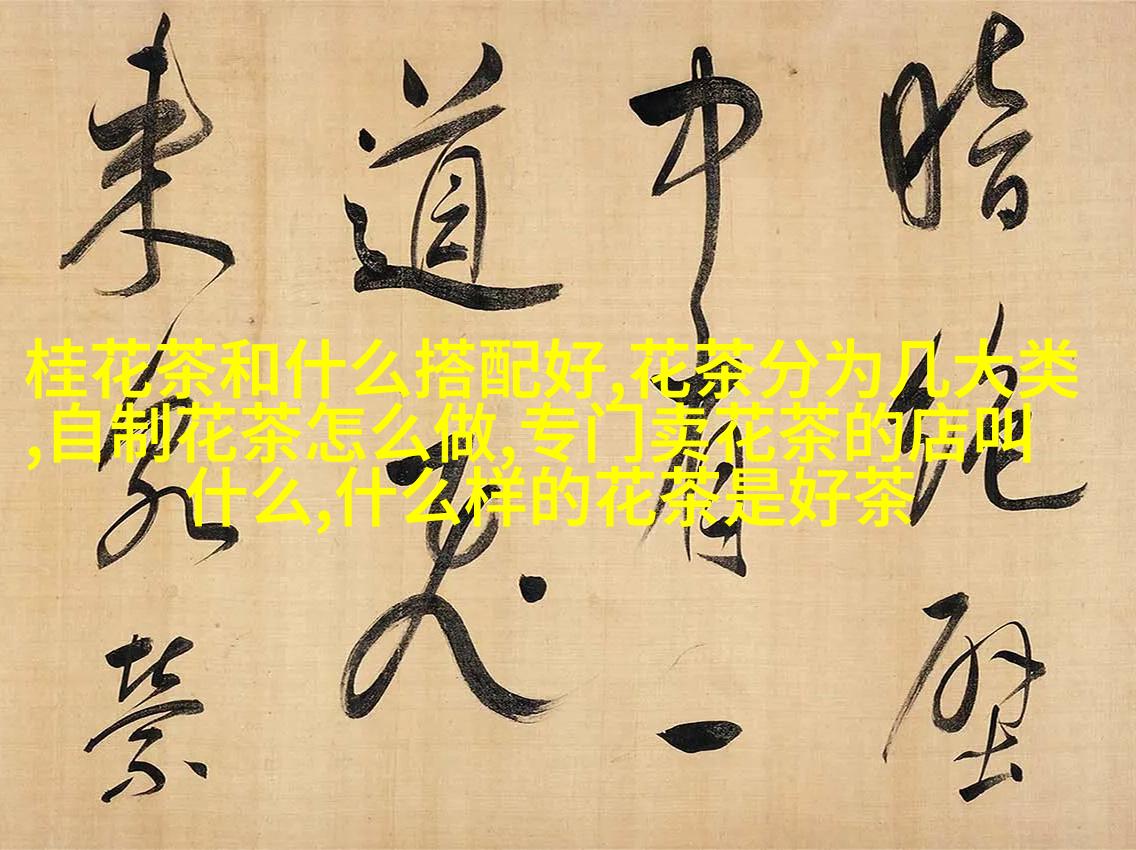 桂花茶和什么搭配好,花茶分为几大类
,自制花茶怎么做,专门卖花茶的店叫
什么,什么样的花茶是好茶
暗絕壁
中有一
道
來縈